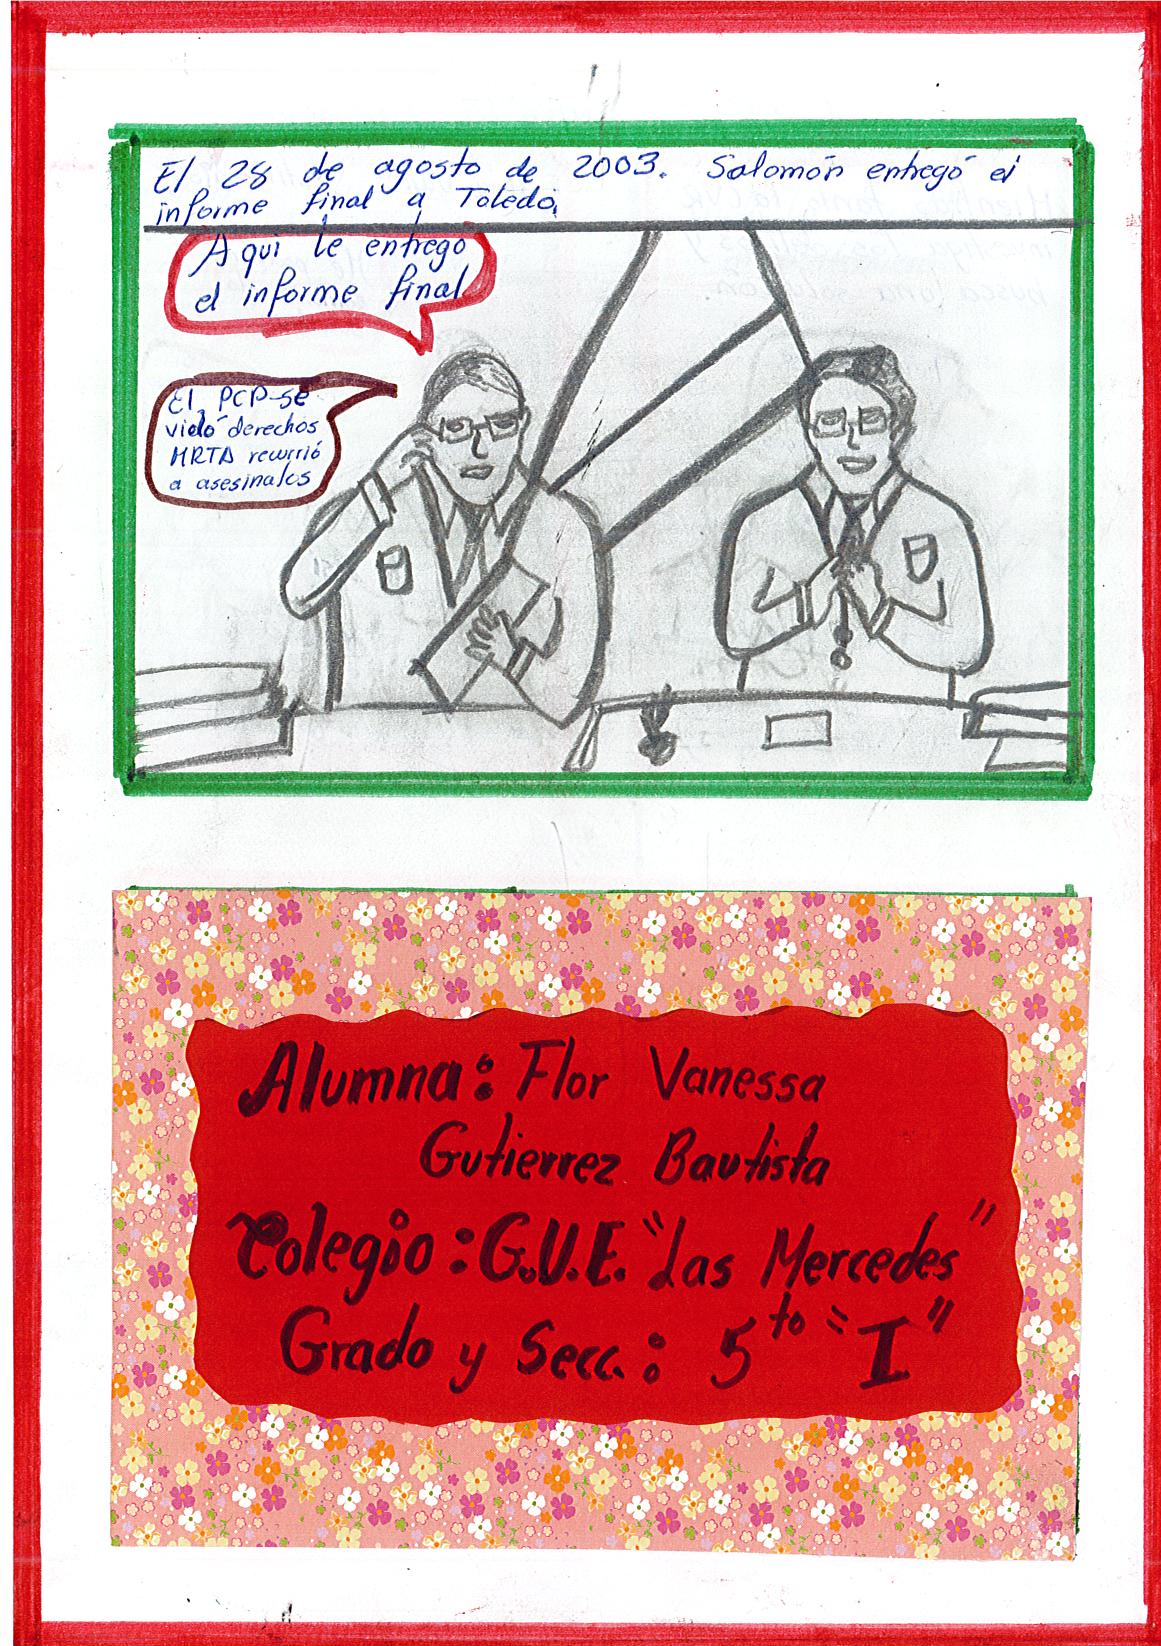 El 28 de agosto de 2003. Salomón entregó el
informe final a Toledo.
Aqui le entrego
el informe final
El PCP-SE
violó derechos
MRTA recurrió
a asesinatos
Alumna: Flor Vanessa
Gutierrez Bautista
Colegio: G.U.E. "Las Mercedes"
Grado y Secc.: 5to "I"